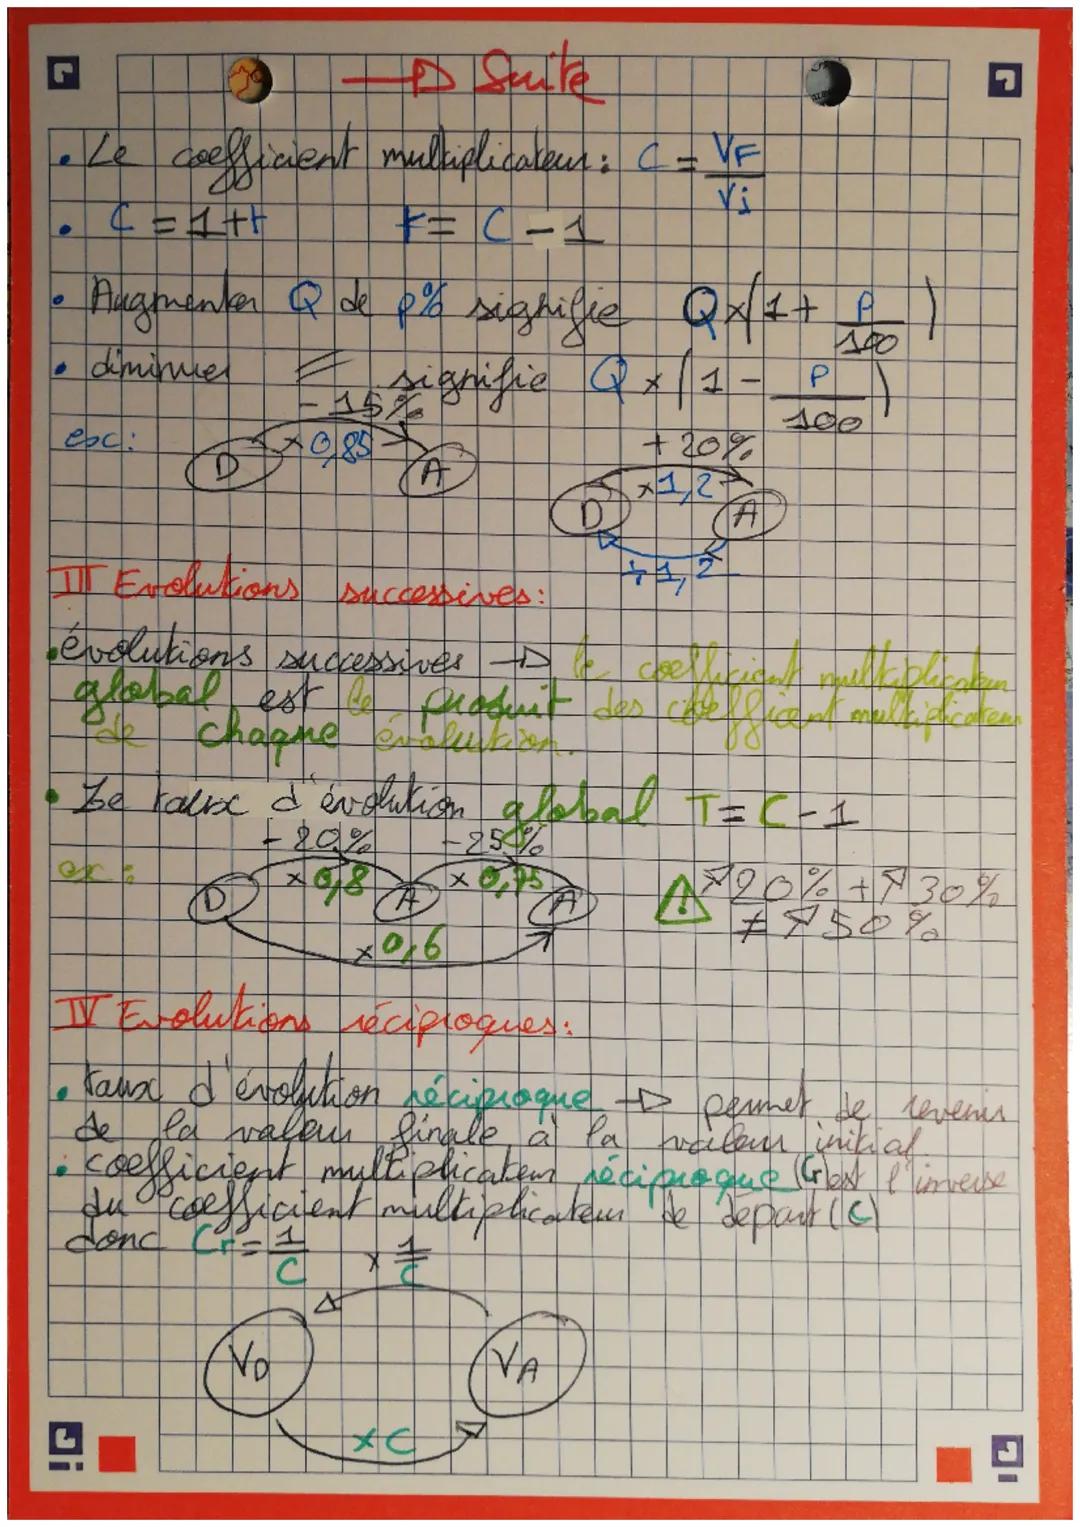 → Suite
• Le coefficient multiplicateur: C = VF/Vi
• C = 1+t   t = C - 1
• Augmenter Q de p% signifie Q×(1 + p/100)
• diminuer = signifie Q × (1 - p/100)
ex:
- 15%
× 0,85
D A
+ 20%
×1,2
D A
÷1,2
III Evolutions successives:
• évolutions successives → le coefficient multiplicateur
global est le produit des coefficient multiplicateurs
de chaque évolution.
• Le taux d'évolution global T = C - 1
ex:
- 20% - 25%
× 0,8 × 0,75
D A A
× 0,6
⚠ ↗20% + ↗30%
≠ ↗50%
IV Evolutions réciproques:
• taux d'évolution réciproque → permet de revenir
de la valeur finale à la valeur initial
• coefficient multiplicateur réciproque (Cr) est l'inverse
du coefficient multiplicateur de départ (C)
donc Cr = 1/C
× 1/C
VD VA
× C